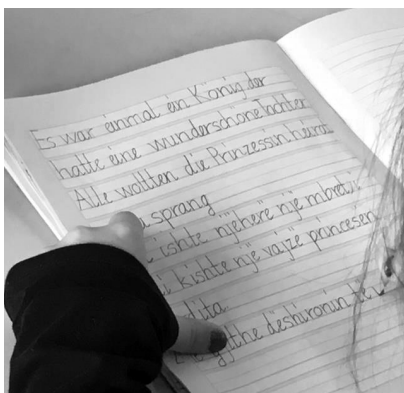 Es war einmal ein König der
hatte eine wunderschöne Tochter
Alle wollten die Prinzessin heirat
sprang
ishte njëherë një mbret i
kishte një vajzë princesën
dita
gjithë dëshironin të